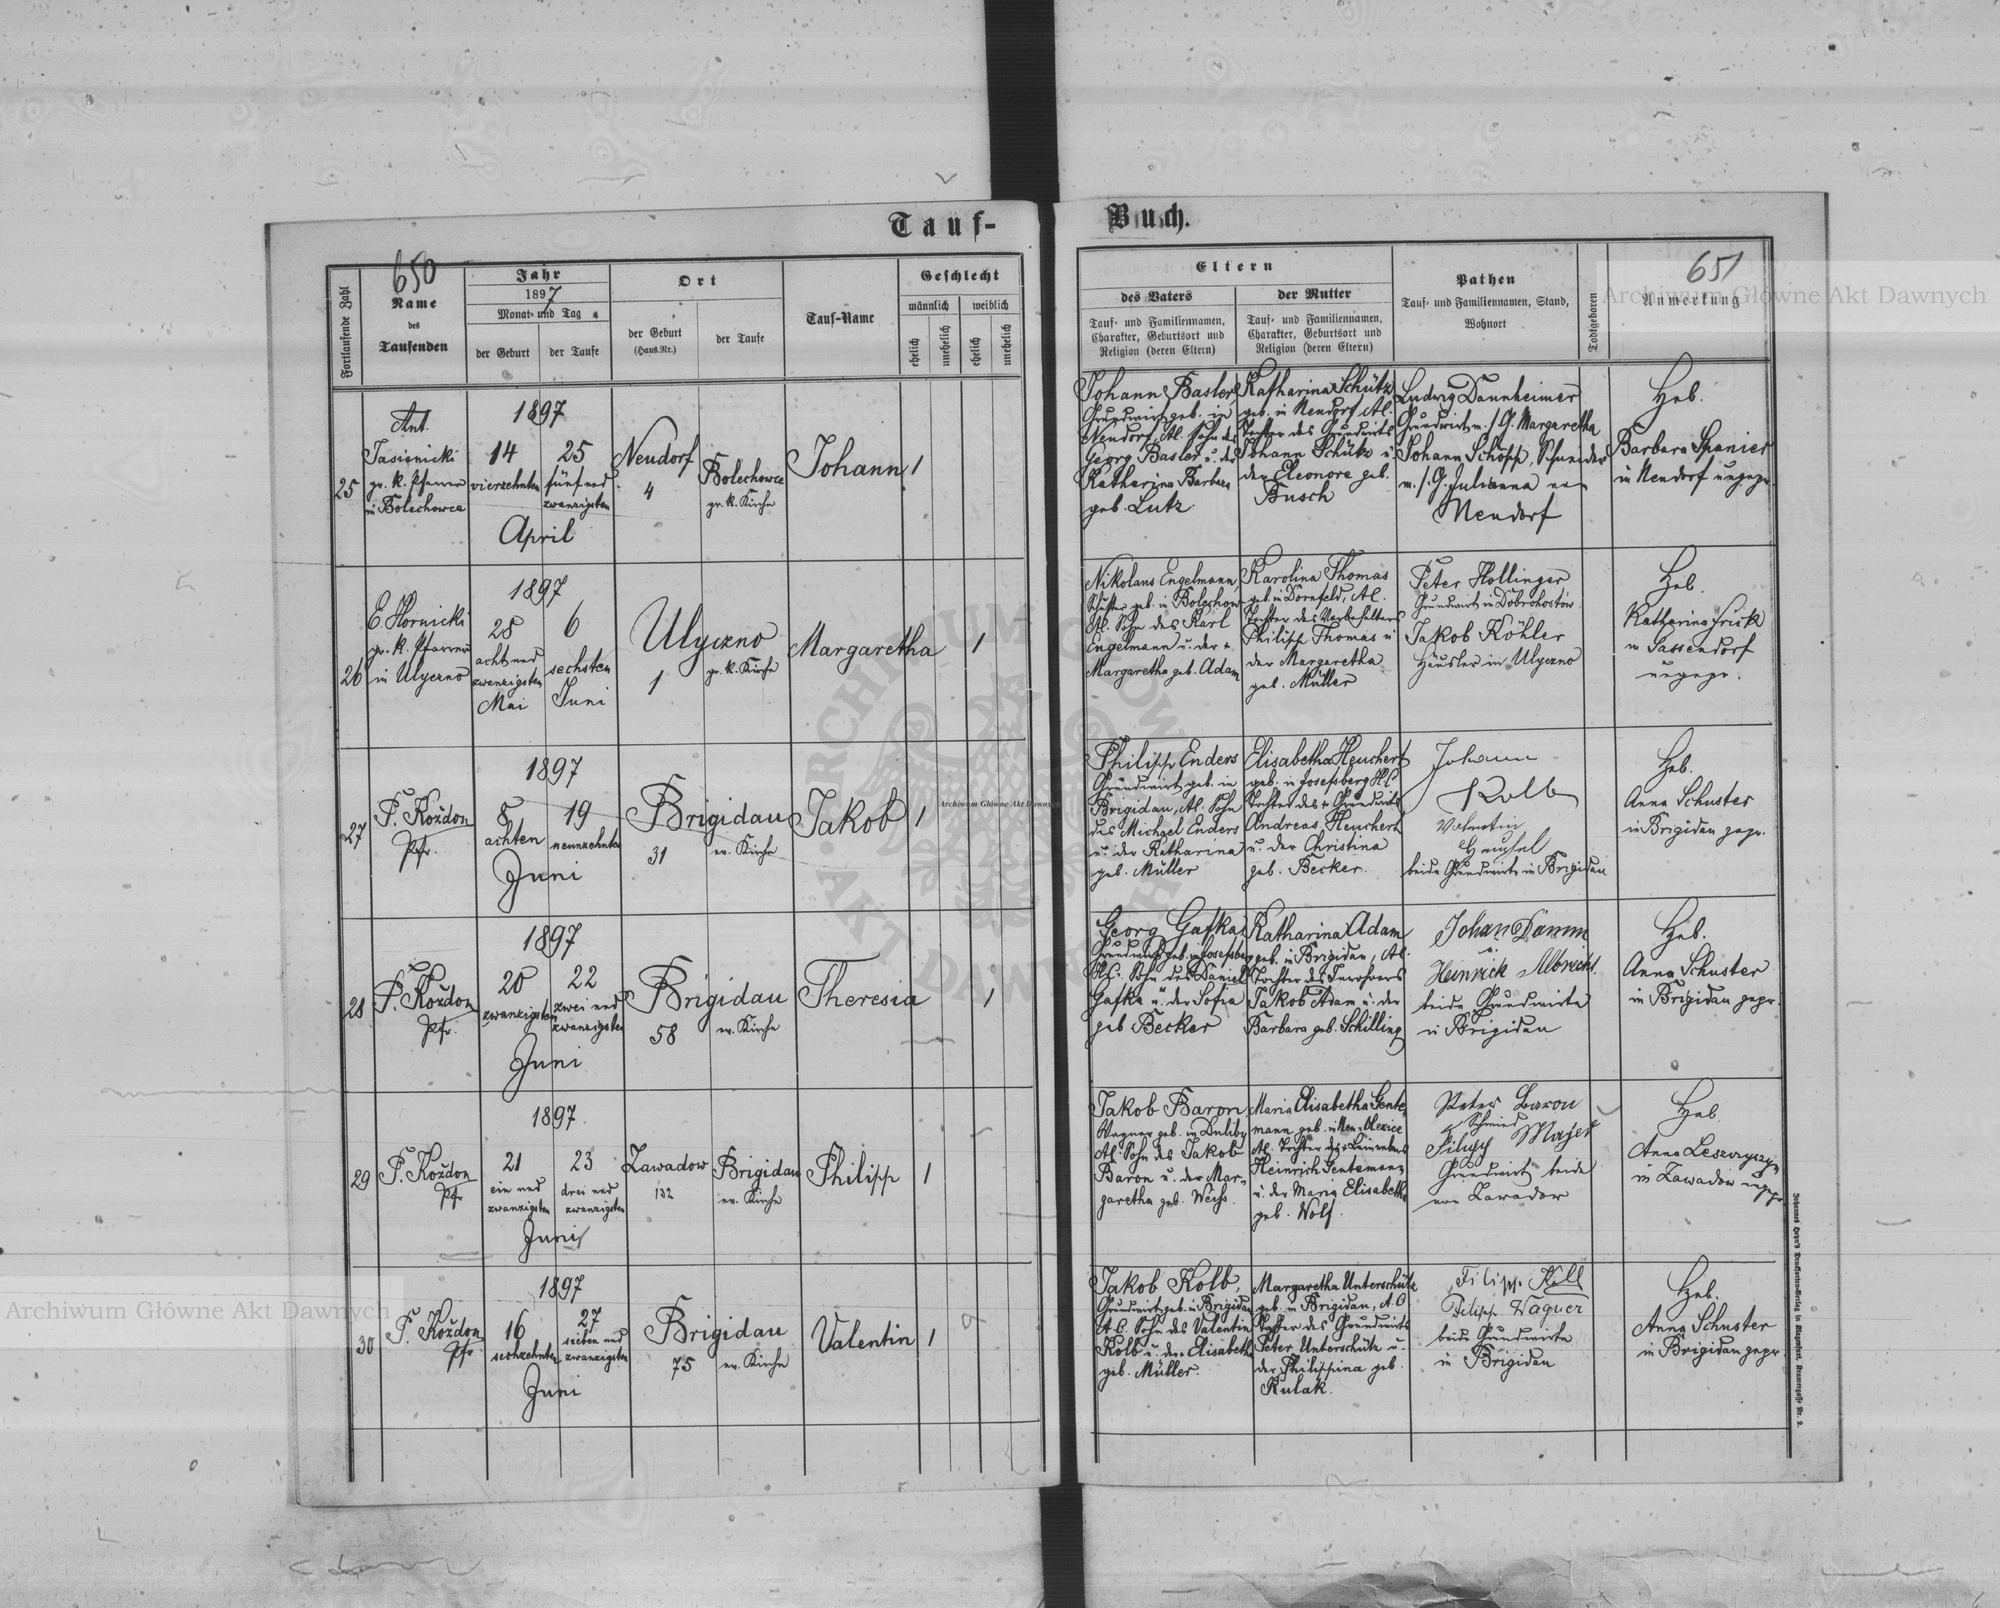 Tauf-
Buch.
650
Fortlaufende Zahl
Name
des
Taufenden
Jahr
1897
Monat- und Tag
der Geburt
der Taufe
Ort
der Geburt
(Haus-Nr.)
der Taufe
Tauf-Name
Geschlecht
männlich
weiblich
ehelich
unehelich
ehelich
unehelich
25
Ant.
Jasienicki
gr. k. Pfarrer
in Bolechowce
1897
14
vierzehnten
25
fünf und
zwanzigsten
April
Neudorf
4
Bolechowce
gr. k. Kirche
Johann
1
26
E Hornicki
gr. k. Pfarrer
in Ulyczno
1897
28
acht und
zwanzigsten
Mai
6
sechsten
Juni
Ulyczno
1
gr. k. Kirche
Margaretha
1
27
P. Koždon
Pfr.
1897
8
achten
19
neunzehnten
Juni
Brigidau
31
ev. Kirche
Jakob
1
28
P. Koždon
Pfr.
1897
20
zwanzigsten
22
zwei und
zwanzigsten
Juni
Brigidau
58
ev. Kirche
Theresia
1
29
P. Koždon
Pfr
1897
21
ein und
zwanzigsten
23
drei und
zwanzigsten
Juni
Zawadow
132
Brigidau
ev. Kirche
Philipp
1
30
P. Koždon
Pfr.
1897
16
sechzehnten
27
sieben und
zwanzigsten
Juni
Brigidau
75
ev. Kirche
Valentin
1
Eltern
des Vaters
Tauf- und Familiennamen,
Charakter, Geburtsort und
Religion (deren Eltern)
der Mutter
Tauf- und Familiennamen,
Charakter, Geburtsort und
Religion (deren Eltern)
Pathen
Tauf- und Familiennamen, Stand,
Wohnort
Todtgeboren
651
Anmerkung
Johann Basler,
Grundwirt geb. in
Neudorf, AC. Sohn des
Georg Basler u. der
Katharina Barbara
geb. Lutz.
Katharina Schütz
geb. in Neudorf AC.
Tochter des Grundwirts
Johann Schütz u.
der Eleonore geb.
Busch
Ludwig Dannheimer
Grundwirt m./G. Margaretha
Johann Schöpp, Schneider
m./G. Julianna
Neudorf
Heb.
Barbara Spanier
in Neudorf ungepr.
Nikolaus Engelmann
Schuster geb. in Bolechow
AC. Sohn des Karl
Engelmann u. der
Margaretha geb. Adam
Karolina Thomas
geb. in Dornfeld, AC.
Tochter des Vorbehalters
Philipp Thomas u
der Margaretha
geb. Müller
Peter Hollinger
Grundwirt in Dobrohostów
Jakob Köhler
Häusler in Ulyczno
Heb.
Katharina Frick
in Sassendorf
ungepr.
Philipp Enders
Grundwirt geb. in
Brigidau, AC. Sohn
des Michael Enders
u. der Katharina
geb. Müller
Elisabetha Heuchert
geb. in Josefsberg H.C.
Tochter des + Grundwirts
Andreas Heuchert
u. der Christina
geb. Becker.
Johann
Kolb
Valentin
Heuchel
beide Grundwirte in Brigidau
Heb.
Anna Schuster
in Brigidau gepr.
Georg Gafka
Grundwirt geb. in Josefsberg
H.C. Sohn des Daniel
Gafka u. der Sofia
geb Becker
Katharina Adam
geb. in Brigidau, AC.
Tochter des
Jakob Adam u. der
Barbara geb. Schilling
Johan Damm
u.
Heinrich Albrecht.
beide Grundwirte
in Brigidau
Heb.
Anna Schuster
in Brigidau gepr.
Jakob Baron
Wagner geb. in Duliby
AC. Sohn des Jakob
Baron u. der Mar-
garetha geb. Weiss.
Maria Elisabetha Gente-
mann geb. in Neu-Olexice
AC. Tochter des
Heinrich Gentemann
u. der Maria Elisabetha
geb. Wolf.
Peter Baron
Schmied
Filipp Majer
Grundwirt beide
von Zawadow
Heb
Anna Leszczyszyn
in Zawadow ungepr.
Jakob Kolb,
Grundwirt geb. in Brigidau
A.C. Sohn des Valentin
Kolb u. der Elisabetha
geb. Müller.
Margaretha Unterschütz
geb. in Brigidau, A.C
Tochter des Grundwirts
Peter Unterschütz u.
der Philippina geb.
Kulak.
Filipp Koll
Filipp Wagner
beide Grundwirte
in Brigidau
Heb.
Anna Schuster
in Brigidau gepr.
Archiwum Główne Akt Dawnych
Archiwum Główne Akt Dawnych
Archiwum Główne Akt Dawnych
ARCHIWUM GŁÓWNE AKT DAWNYCH